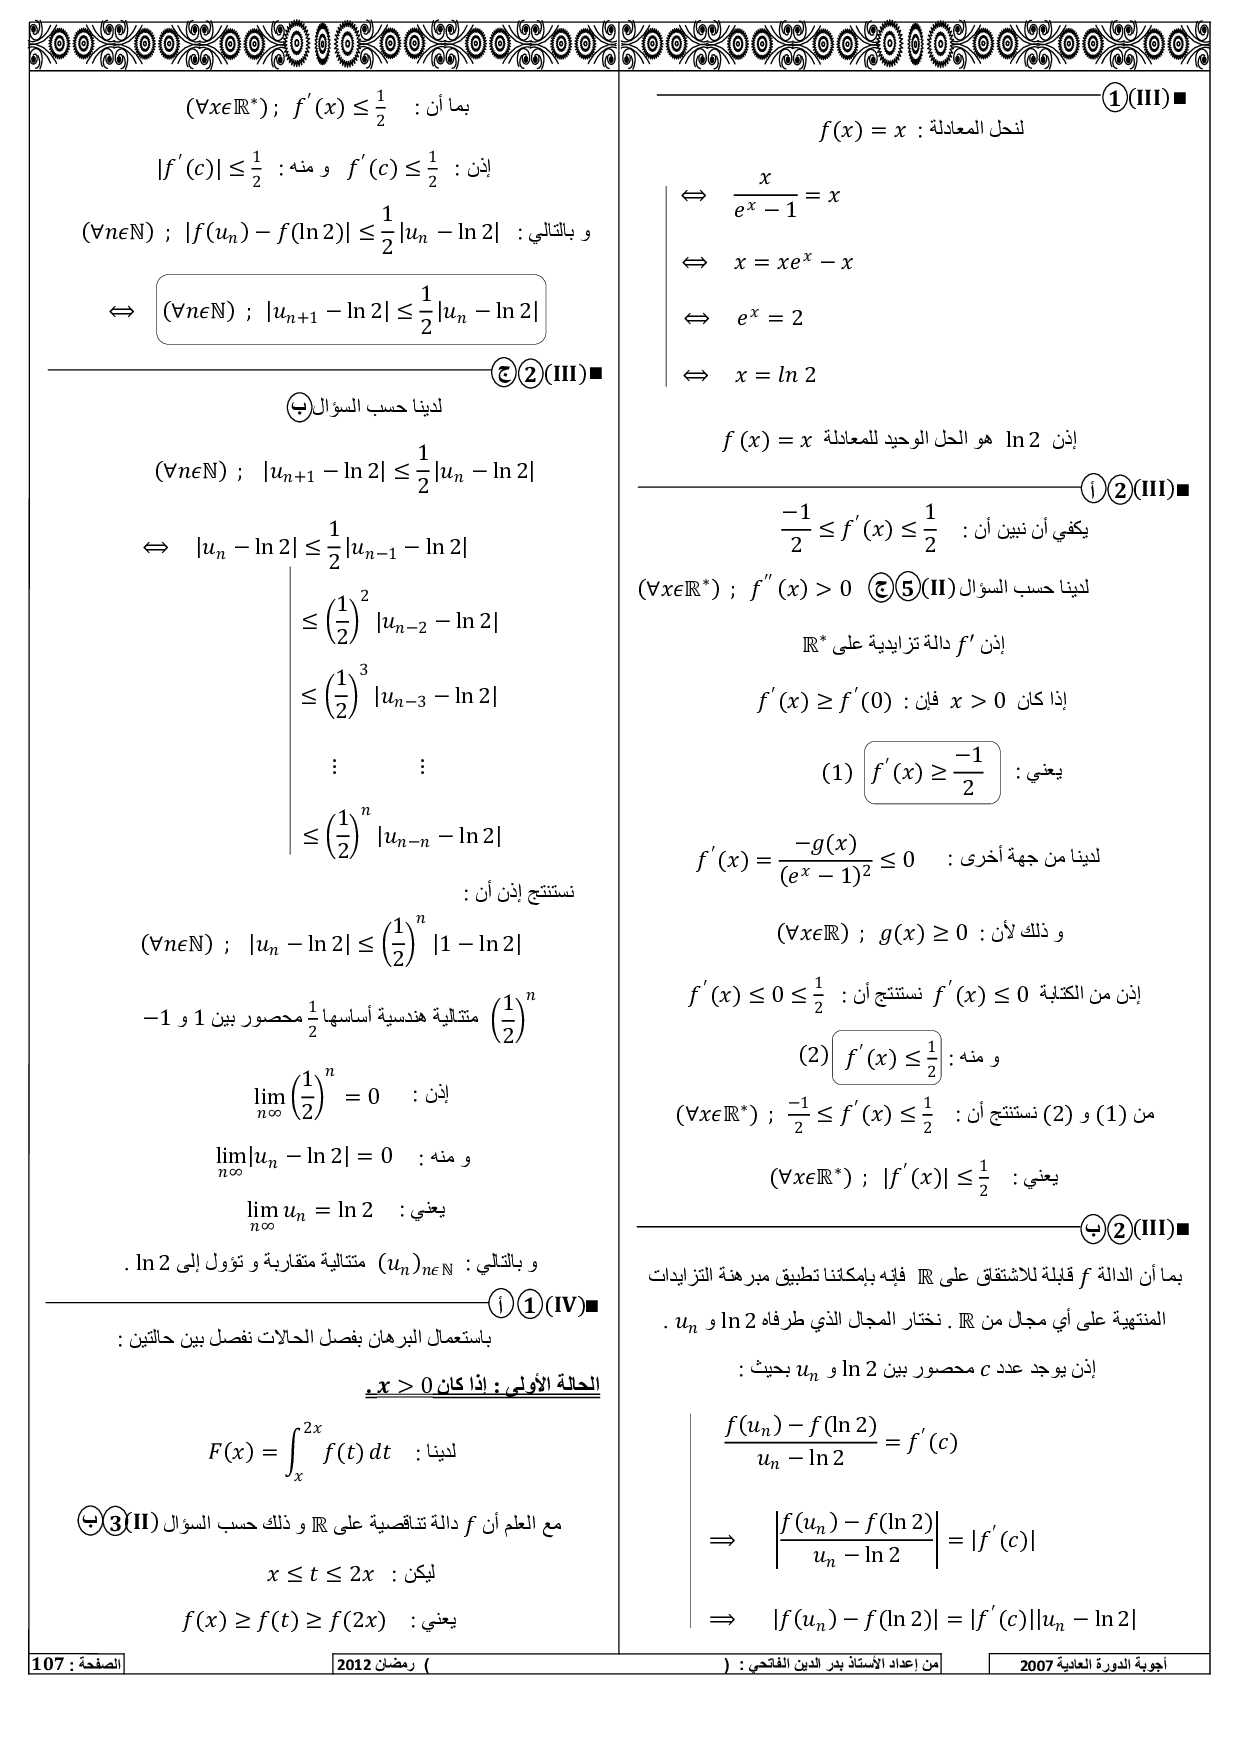 ■(III)①
لنحل المعادلة : f(x) = x
⟺ x/(e^x − 1) = x
⟺ x = xe^x − x
⟺ e^x = 2
⟺ x = ln 2
إذن ln 2 هو الحل الوحيد للمعادلة f(x) = x
■(III)②أ
يكفي أن نبين أن : −1/2 ≤ f′(x) ≤ 1/2
لدينا حسب السؤال (II)⑤ج (∀xϵℝ*) ; f″(x) > 0
إذن f′ دالة تزايدية على ℝ*
إذا كان x > 0 فإن : f′(x) ≥ f′(0)
يعني : f′(x) ≥ −1/2 (1)
لدينا من جهة أخرى : f′(x) = −g(x)/(e^x − 1)² ≤ 0
و ذلك لأن : (∀xϵℝ) ; g(x) ≥ 0
إذن من الكتابة f′(x) ≤ 0 نستنتج أن : f′(x) ≤ 0 ≤ 1/2
و منه : f′(x) ≤ 1/2 (2)
من (1) و (2) نستنتج أن : (∀xϵℝ*) ; −1/2 ≤ f′(x) ≤ 1/2
يعني : (∀xϵℝ*) ; |f′(x)| ≤ 1/2
■(III)②ب
بما أن الدالة f قابلة للاشتقاق على ℝ فإنه بإمكاننا تطبيق مبرهنة التزايدات
المنتهية على أي مجال من ℝ . نختار المجال الذي طرفاه ln 2 و uₙ .
إذن يوجد عدد c محصور بين ln 2 و uₙ بحيث :
(f(uₙ) − f(ln 2))/(uₙ − ln 2) = f′(c)
⟹ |(f(uₙ) − f(ln 2))/(uₙ − ln 2)| = |f′(c)|
⟹ |f(uₙ) − f(ln 2)| = |f′(c)||uₙ − ln 2|
بما أن : (∀xϵℝ*) ; f′(x) ≤ 1/2
إذن : f′(c) ≤ 1/2 و منه : |f′(c)| ≤ 1/2
و بالتالي : (∀nϵℕ) ; |f(uₙ) − f(ln 2)| ≤ 1/2 |uₙ − ln 2|
⟺ (∀nϵℕ) ; |uₙ₊₁ − ln 2| ≤ 1/2 |uₙ − ln 2|
■(III)②ج
لدينا حسب السؤال ب
(∀nϵℕ) ; |uₙ₊₁ − ln 2| ≤ 1/2 |uₙ − ln 2|
⟺ |uₙ − ln 2| ≤ 1/2 |uₙ₋₁ − ln 2|
≤ (1/2)² |uₙ₋₂ − ln 2|
≤ (1/2)³ |uₙ₋₃ − ln 2|
⋮ ⋮
≤ (1/2)ⁿ |uₙ₋ₙ − ln 2|
نستنتج إذن أن :
(∀nϵℕ) ; |uₙ − ln 2| ≤ (1/2)ⁿ |1 − ln 2|
(1/2)ⁿ متتالية هندسية أساسها 1/2 محصور بين 1 و −1
إذن : lim n∞ (1/2)ⁿ = 0
و منه : lim n∞ |uₙ − ln 2| = 0
يعني : lim n∞ uₙ = ln 2
و بالتالي : (uₙ)nϵℕ متتالية متقاربة و تؤول إلى ln 2 .
■(IV)①أ
باستعمال البرهان بفصل الحالات نفصل بين حالتين :
الحالة الأولى : إذا كان x > 0 .
لدينا : F(x) = ∫ₓ²ˣ f(t) dt
مع العلم أن f دالة تناقصية على ℝ و ذلك حسب السؤال (II)③ب
ليكن : x ≤ t ≤ 2x
يعني : f(x) ≥ f(t) ≥ f(2x)
أجوبة الدورة العادية 2007
من إعداد الأستاذ بدر الدين الفاتحي : ( ) رمضان 2012
الصفحة : 107